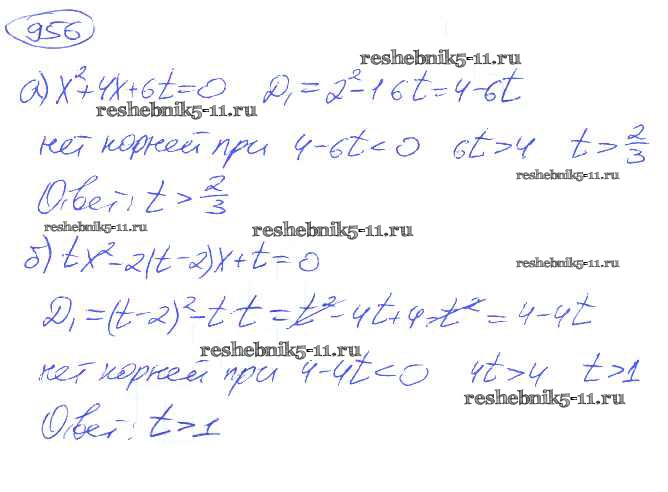 956
reshebnik5-11.ru
а) x²+4x+6t=0 D₁=2²-1·6t=4-6t
reshebnik5-11.ru
нет корней при 4-6t<0 6t>4 t>2/3
reshebnik5-11.ru
Ответ: t>2/3
reshebnik5-11.ru reshebnik5-11.ru
б) tx²-2(t-2)x+t=0
reshebnik5-11.ru
D₁=(t-2)²-t·t=t²-4t+4-t²=4-4t
reshebnik5-11.ru
нет корней при 4-4t<0 4t>4 t>1
reshebnik5-11.ru
Ответ: t>1